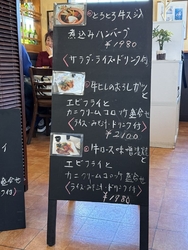 とろとろ牛スジ
煮込みハンバーグ
¥1980
〈サラダ・ライス・ドリンク付〉
牛ヒレのおろしカツ
エビフライと
カニクリームコロッケ盛合せ
〈ライス・みそ汁・ドリンク付〉
¥2100
牛ロース味噌漬と
エビフライと
カニクリームコロッケ盛合せ
〈ライス・みそ汁・ドリンク付〉
¥1980